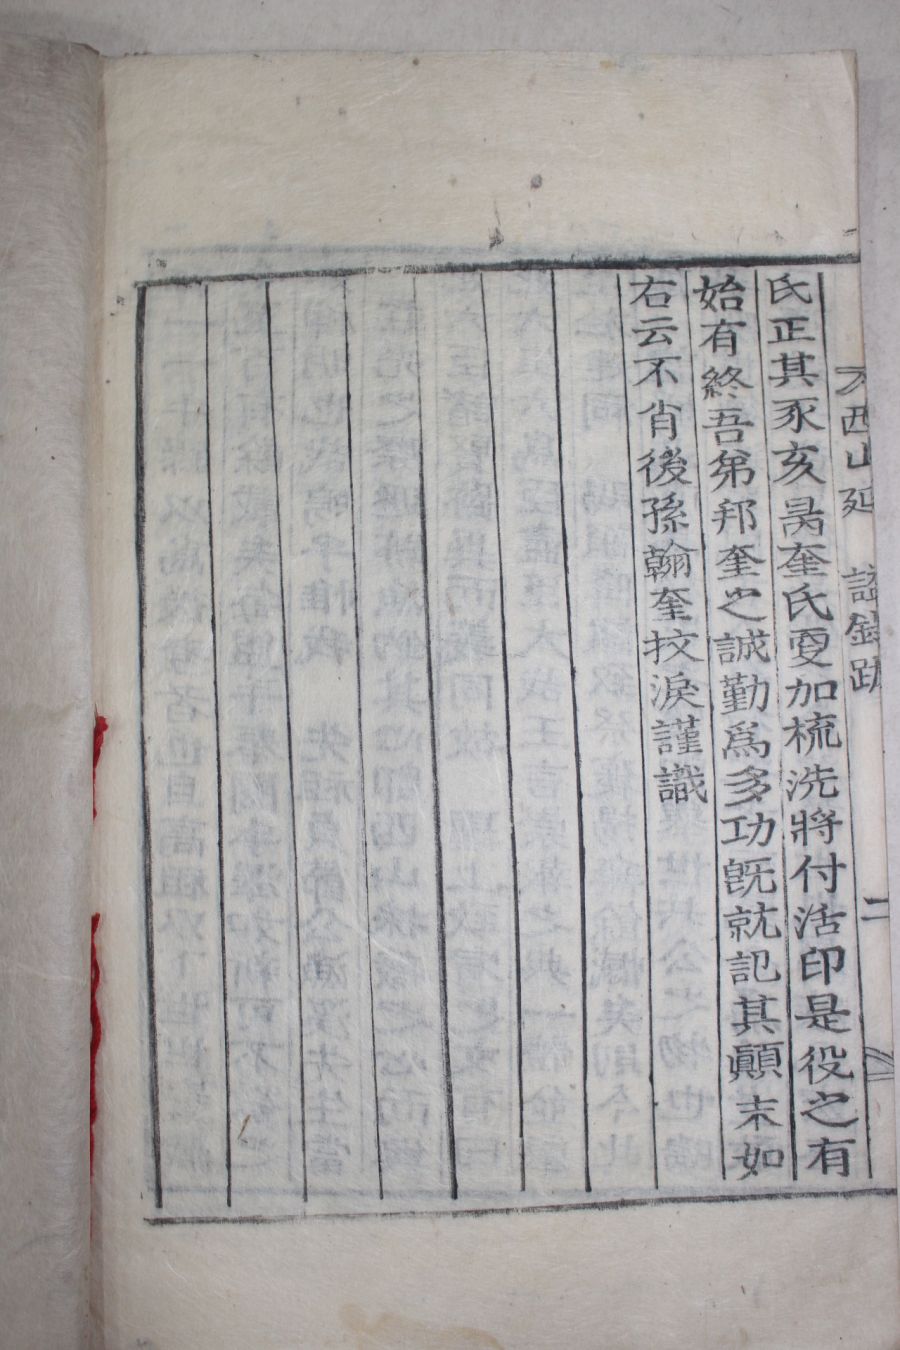 西山延 諡錄跋 二
氏正其豕亥昺奎氏更加梳洗將付活印是役之有
始有終吾弟邦奎之誠勤爲多功旣就記其顚末如
右云不肖後孫翰奎抆淚謹識